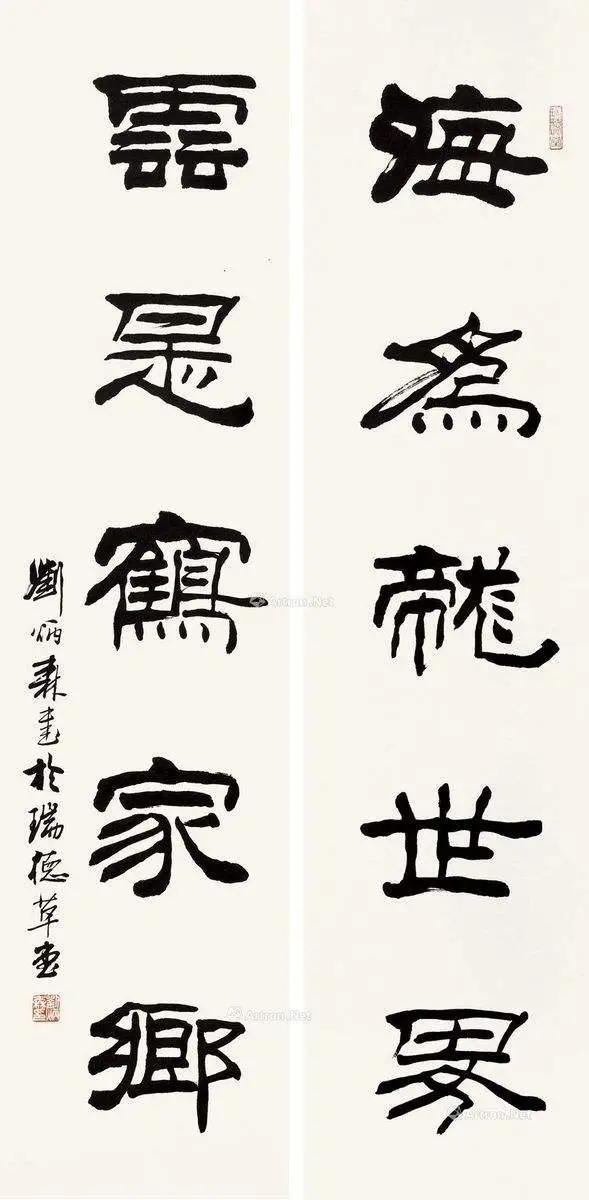 海為龍世界
雲是鶴家鄉
劉炳森書於瑞德草堂
Artron.Net
Artron.Net
Artron.Net